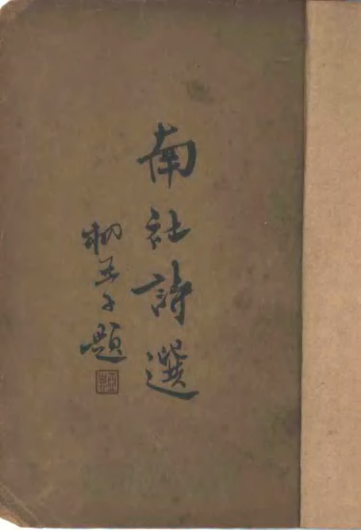 南社詩選
柳亞子題